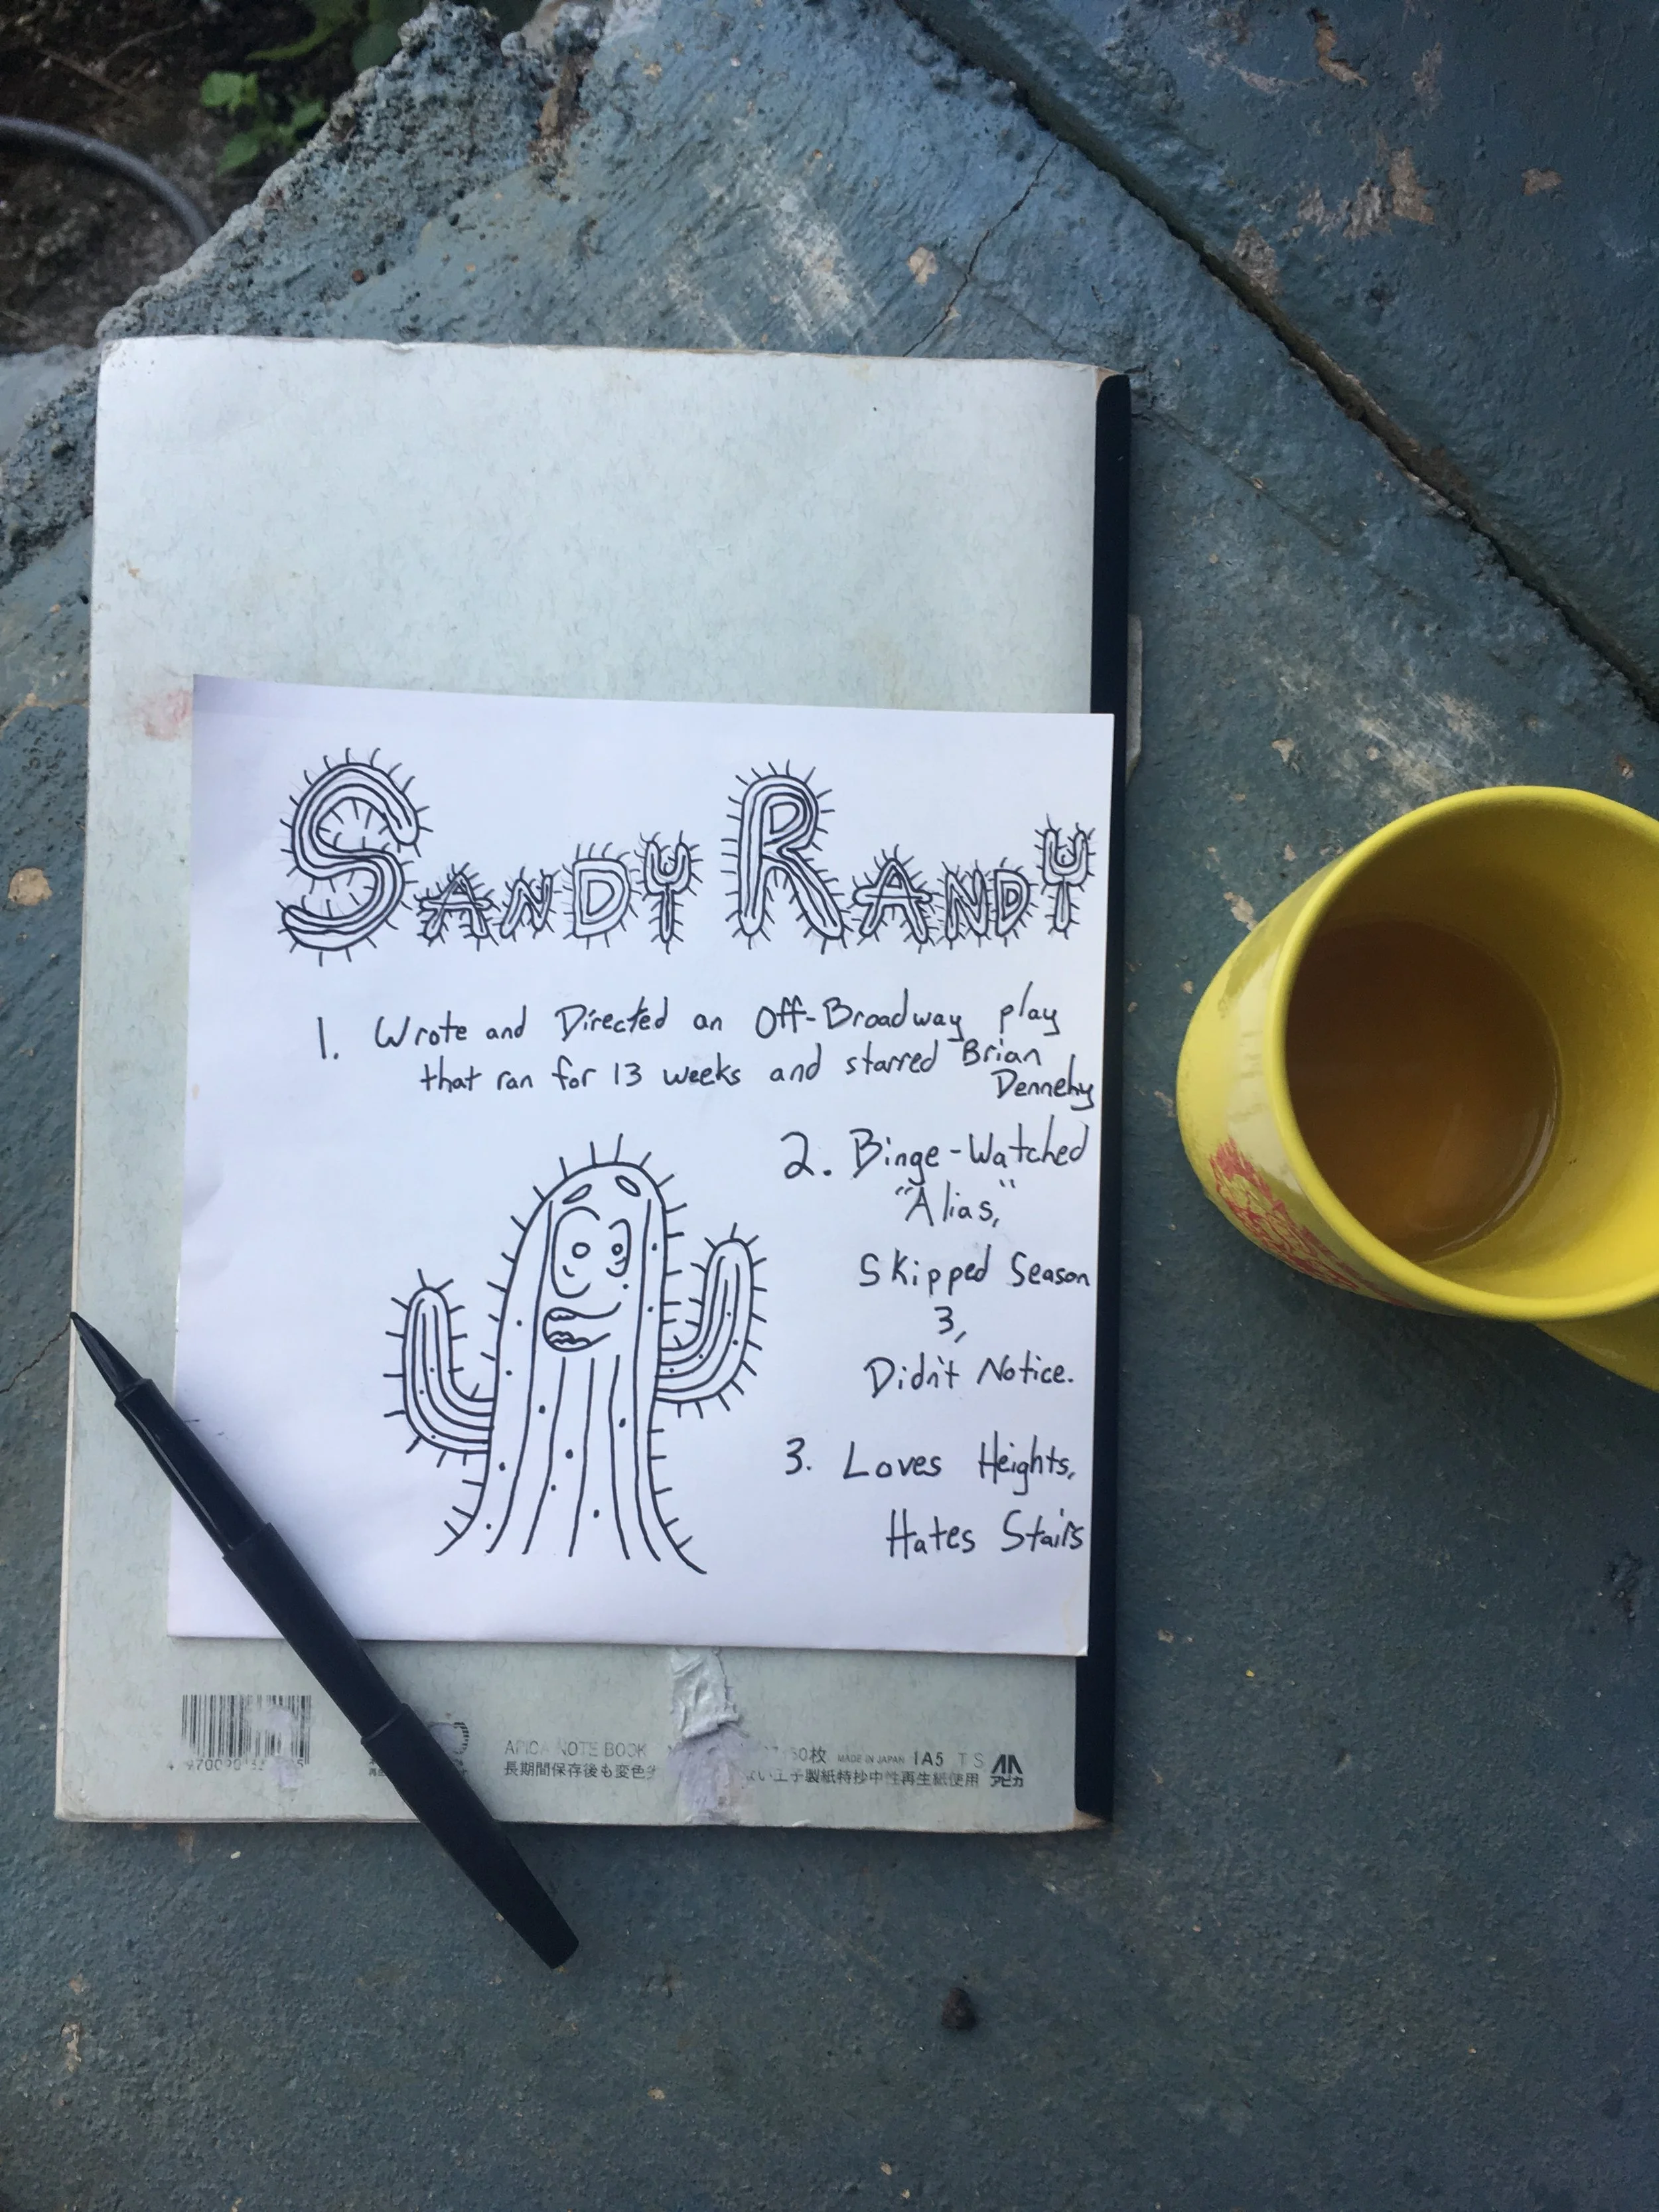 SANDY RANDY
1. Wrote and Directed an Off-Broadway play
that ran for 13 weeks and starred Brian
Dennehy
2. Binge-Watched
"Alias,"
Skipped Season
3,
Didn't Notice.
3. Loves Heights,
Hates Stairs
APICA NOTE BOOK
MADE IN JAPAN 1A5 T S
長期間保存後も変色 い王子製紙特抄中性再生紙使用 アピカ